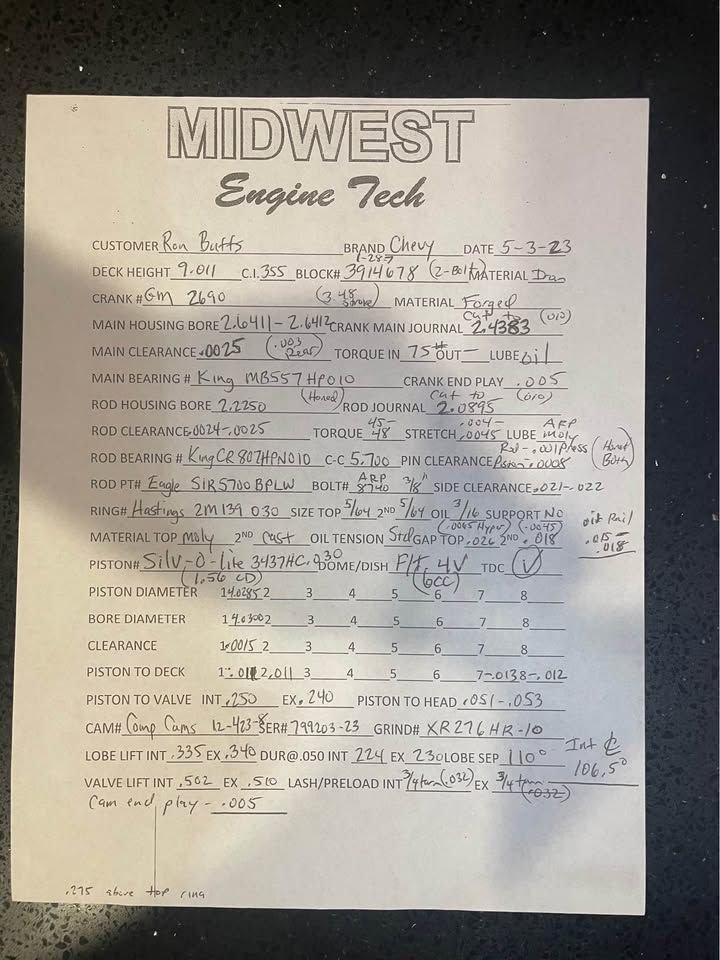 MIDWEST
Engine Tech
CUSTOMER Ron Butts BRAND Chevy DATE 5-3-23
DECK HEIGHT 9.011 C.I. 355 BLOCK# 3914678 (2-Bolt) MATERIAL
CRANK # GM 2690 (3.48 stroke) MATERIAL Forged
MAIN HOUSING BORE 2.6411-2.6412 CRANK MAIN JOURNAL Cut to 2.4383 (010)
MAIN CLEARANCE .0025 (.003 Rear) TORQUE IN 75# OUT - LUBE oil
MAIN BEARING # King MB557HP010 CRANK END PLAY .005
ROD HOUSING BORE 2.2250 (Honed) ROD JOURNAL Cut to 2.0895 (010)
ROD CLEARANCE .0024-.0025 TORQUE 45-48 STRETCH .004-.0045 LUBE ARP moly
ROD BEARING # King CR807HPN010 C-C 5.700 PIN CLEARANCE Rod-.001 Press Piston .0008 (Honed Both)
ROD PT# Eagle SIR5700BPLW BOLT# ARP 8740 3/8" SIDE CLEARANCE .021-.022
RING# Hastings 2M139 030 SIZE TOP 5/64 2ND 5/64 OIL 3/16 SUPPORT NO
MATERIAL TOP moly 2ND cast OIL TENSION Std GAP TOP (.0065 Hyper) .026 2ND (.0045) .018 oil Rail .015-.018
PISTON# Silv-O-lite 3437HC.030 DOME/DISH F/T, 4V TDC ✓
(1.56 CD) (6cc)
PISTON DIAMETER 1 4.0285 2 3 4 5 6 7 8
BORE DIAMETER 1 4.0300 2 3 4 5 6 7 8
CLEARANCE 1 .0015 2 3 4 5 6 7 8
PISTON TO DECK 1 -.011 2 .011 3 4 5 6 7 -.0138-.012
PISTON TO VALVE INT .250 EX .240 PISTON TO HEAD .051-.053
CAM# Comp Cams 12-423-8 SER# 799203-23 GRIND# XR276HR-10
LOBE LIFT INT .335 EX .340 DUR@.050 INT 224 EX 230 LOBE SEP 110° Int ℄ 106.5°
VALVE LIFT INT .502 EX .510 LASH/PRELOAD INT 3/4 turn (.032) EX 3/4 turn (.032)
Cam end play - .005
.275 above top ring